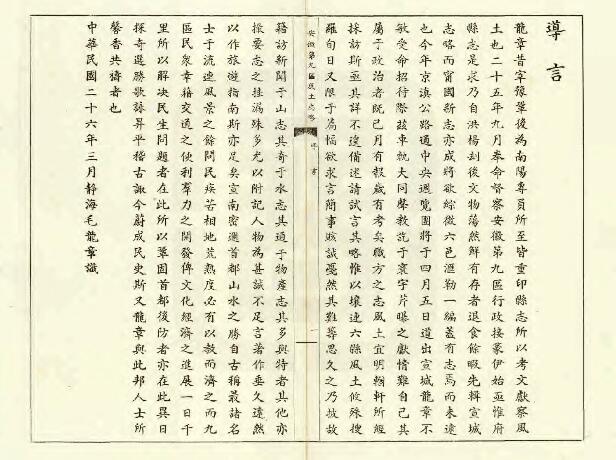 導言
龍章昔宰豫鞏後為南陽專員所至皆重印縣志所以考文獻察風
土也二十五年九月奉命督察安徽第九區行政接篆伊始亟惟府
縣志是求乃自洪楊刦後文物蕩然鮮有存者退食餘暇先輯宣城
志略而甯國新志亦成將欲綜徵六邑滙勒一編蓋有志焉而未逮
也今年京滇公路通中央週覽團將于四月五日道出宣城龍章不
敏受命招待際茲車軌大同聲教訖于寰宇芹曝之獻情難自已其
屬于政治者既已月有報歲有考矣職方之志風土宜明輶軒所經
採訪斯亟其詳不遑備述請試言其略惟以壤連六縣風土攸殊搜
羅旬日又限于篇幅欲求言簡事賅誠戛然其難等思久之乃披故
安徽第九區風土志略
導言
一
籍訪新聞于山志其奇于水志其通于物產志其多與特者其他亦
撮要志之挂漏殊多尤以附記人物為甚誠不足言著作垂久遠然
以作旅遊指南斯亦足矣宣南密邇首都山水之勝自古稱最諸名
士于流連風景之餘問民疾苦相地荒熟度必有以教而濟之而九
區民衆幸藉交通之便利羣力之開發俾文化經濟之進展一日千
里所以解決民生問題者在此所以鞏固首都後防者亦在此異日
探奇選勝歌詠昇平稽古諏今蔚成民史斯又龍章與此邦人士所
馨香共禱者也
中華民國二十六年三月靜海毛龍章識